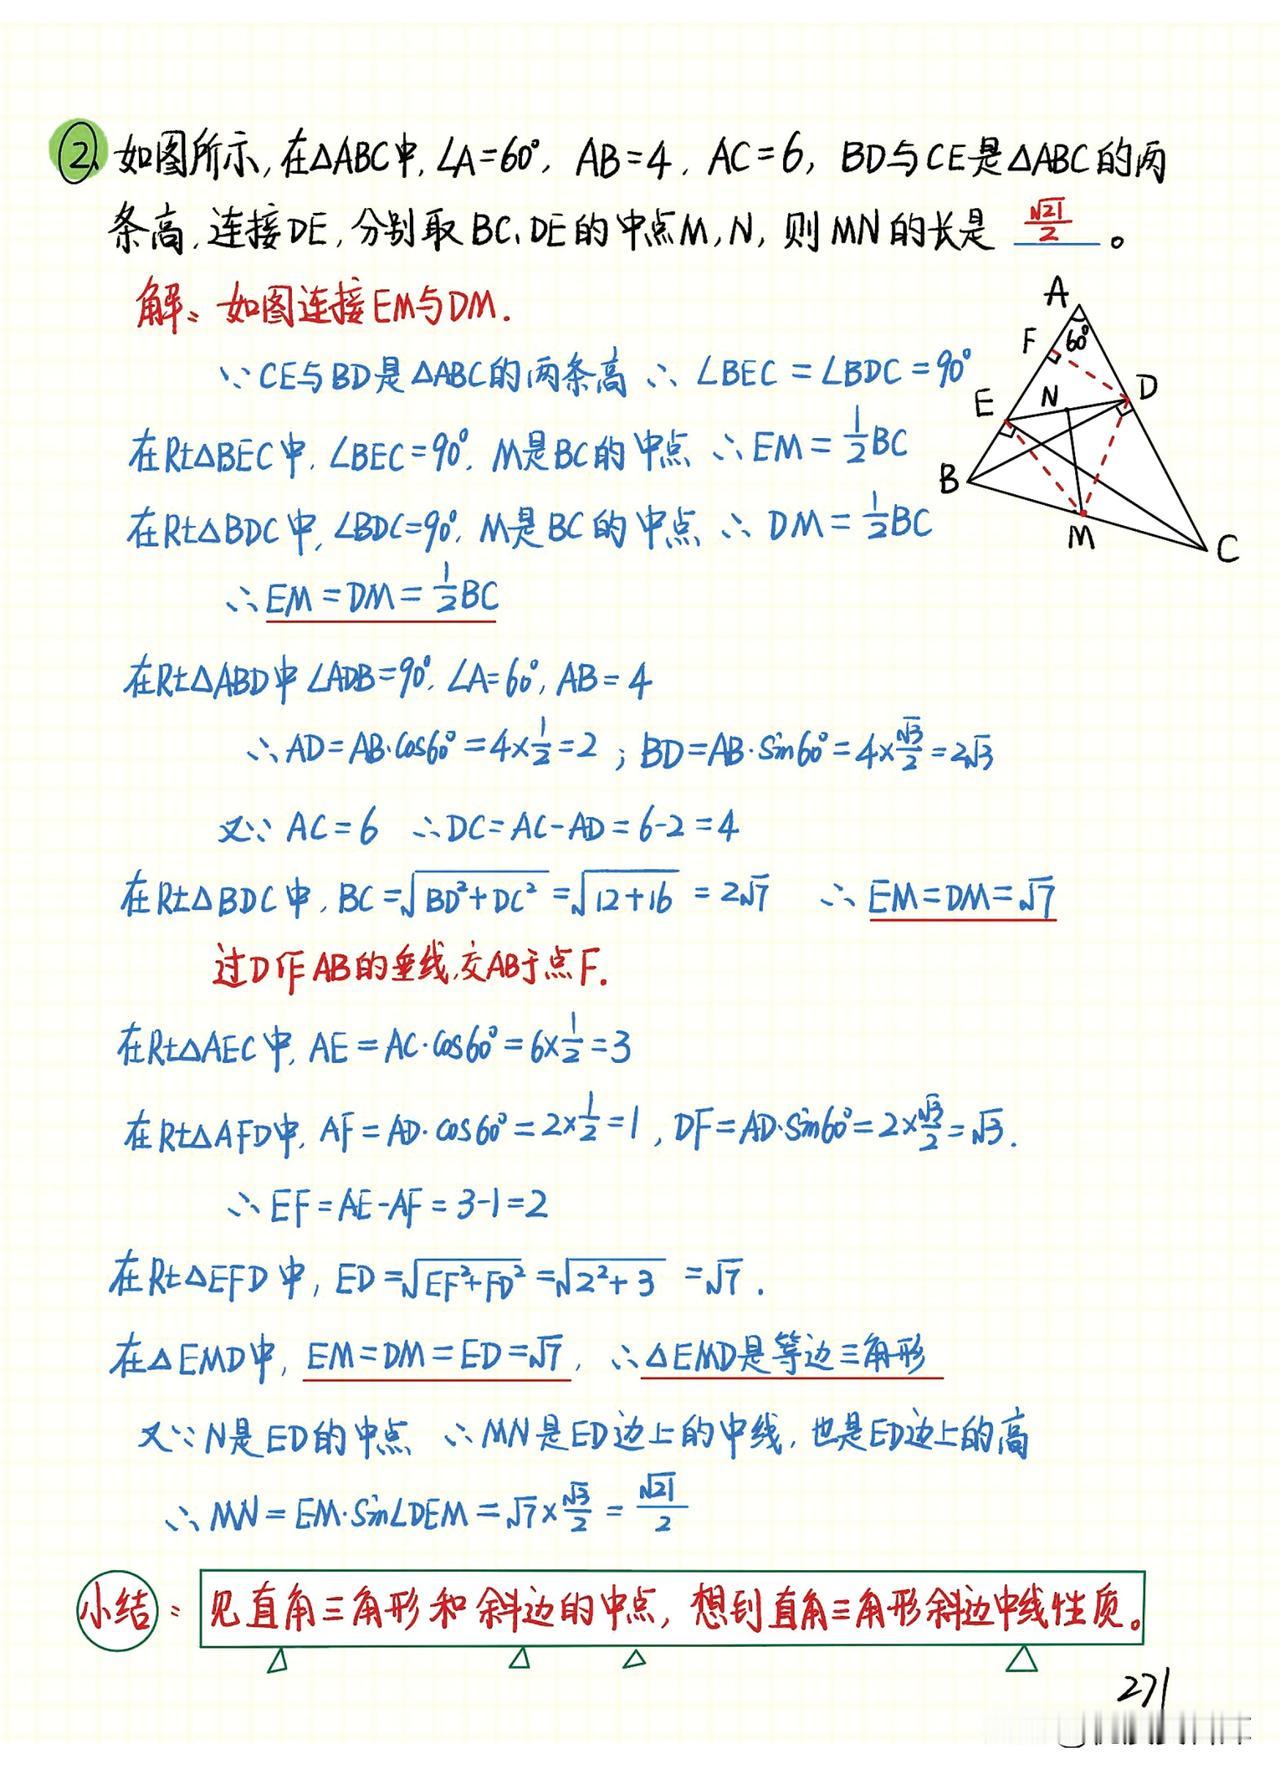 ②、如图所示,在△ABC中,∠A=60°, AB=4, AC=6, BD与CE是△ABC的两
条高,连接DE,分别取BC、DE的中点M,N,则MN的长是 √21/2 。
解:如图连接EM与DM.
∵CE与BD是△ABC的两条高 ∴∠BEC=∠BDC=90°
在Rt△BEC中,∠BEC=90°,M是BC的中点 ∴EM=1/2BC
在Rt△BDC中,∠BDC=90°,M是BC的中点 ∴DM=1/2BC
∴EM=DM=1/2BC
A
F
60°
E
N
D
B
M
C
在Rt△ABD中∠ADB=90°,∠A=60°,AB=4
∴AD=AB·cos60°=4×1/2=2;BD=AB·Sin60°=4×√3/2=2√3
又∵AC=6 ∴DC=AC-AD=6-2=4
在Rt△BDC中,BC=√(BD²+DC²)=√(12+16)=2√7 ∴EM=DM=√7
过D作AB的垂线,交AB于点F.
在Rt△AEC中,AE=AC·cos60°=6×1/2=3
在Rt△AFD中,AF=AD·cos60°=2×1/2=1,DF=AD·Sin60°=2×√3/2=√3.
∴EF=AE-AF=3-1=2
在Rt△EFD中,ED=√(EF²+FD²)=√(2²+3)=√7.
在△EMD中,EM=DM=ED=√7,∴△EMD是等边三角形
又∵N是ED的中点 ∴MN是ED边上的中线,也是ED边上的高
∴MN=EM·Sin∠DEM=√7×√3/2=√21/2
小结:见直角三角形和斜边的中点,想到直角三角形斜边中线性质。
271